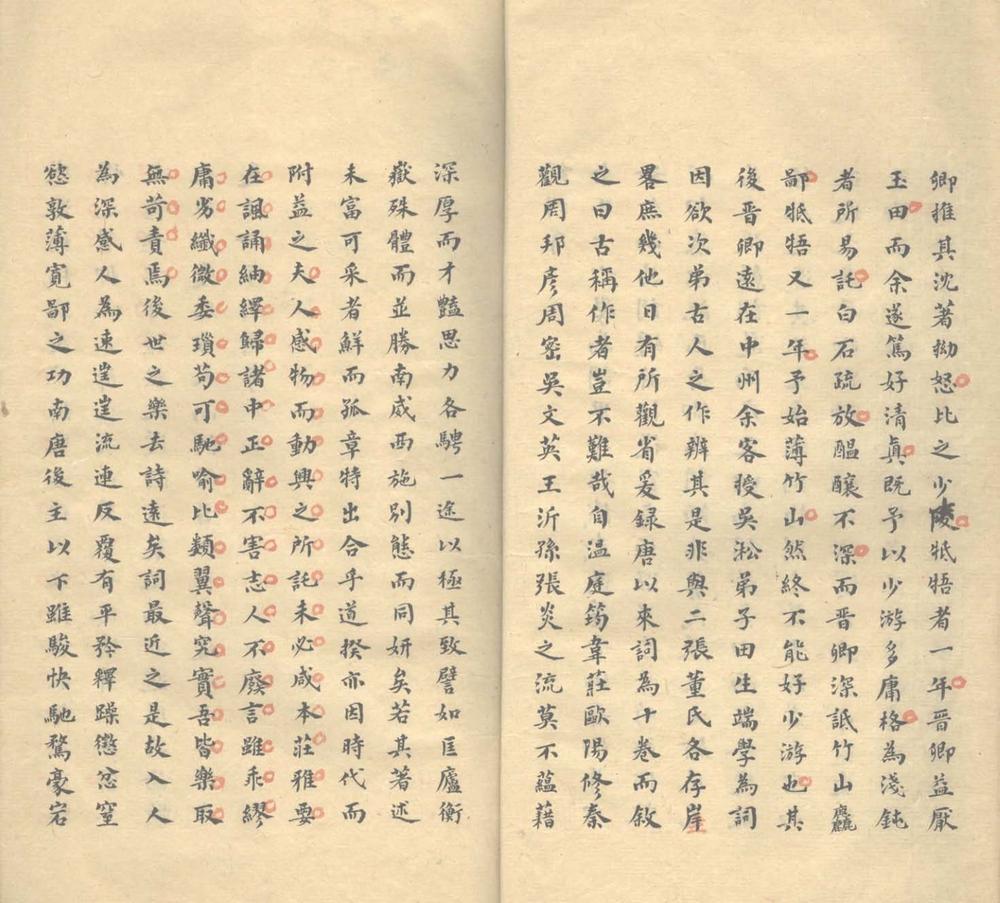 卿推其沈著拗怒比之少陵牴牾者一年晉卿益厭
玉田而余遂篤好清眞既予以少游多庸格為淺鈍
者所易託白石疏放醞釀不深而晉卿深詆竹山麤
鄙牴牾又一年予始薄竹山然終不能好少游也其
後晉卿遠在中州余客授吳淞弟子田生端學為詞
因欲次弟古人之作辨其是非與二張董氏各存岸
畧庶幾他日有所觀省爰録唐以來詞為十卷而敘
之曰古稱作者豈不難哉自溫庭筠韋莊歐陽修秦
觀周邦彥周密吳文英王沂孫張炎之流莫不蘊藉
深厚而才豔思力各騁一途以極其致譬如匡廬衡
嶽殊體而並勝南威西施別態而同妍矣若其著述
未富可采者鮮而孤章特出合乎道揆亦因時代而
附益之夫人感物而動興之所託未必咸本莊雅要
在諷誦紬繹歸諸中正辭不害志人不廢言雖乖繆
庸劣纖微委瑣苟可馳喻比類翼聲究實吾皆樂取
無苛責焉後世之樂去詩遠矣詞最近之是故入人
為深感人為速遑遑流連反覆有平矜釋躁懲忿窒
慾敦薄寬鄙之功南唐後主以下雖駿快馳騖豪宕